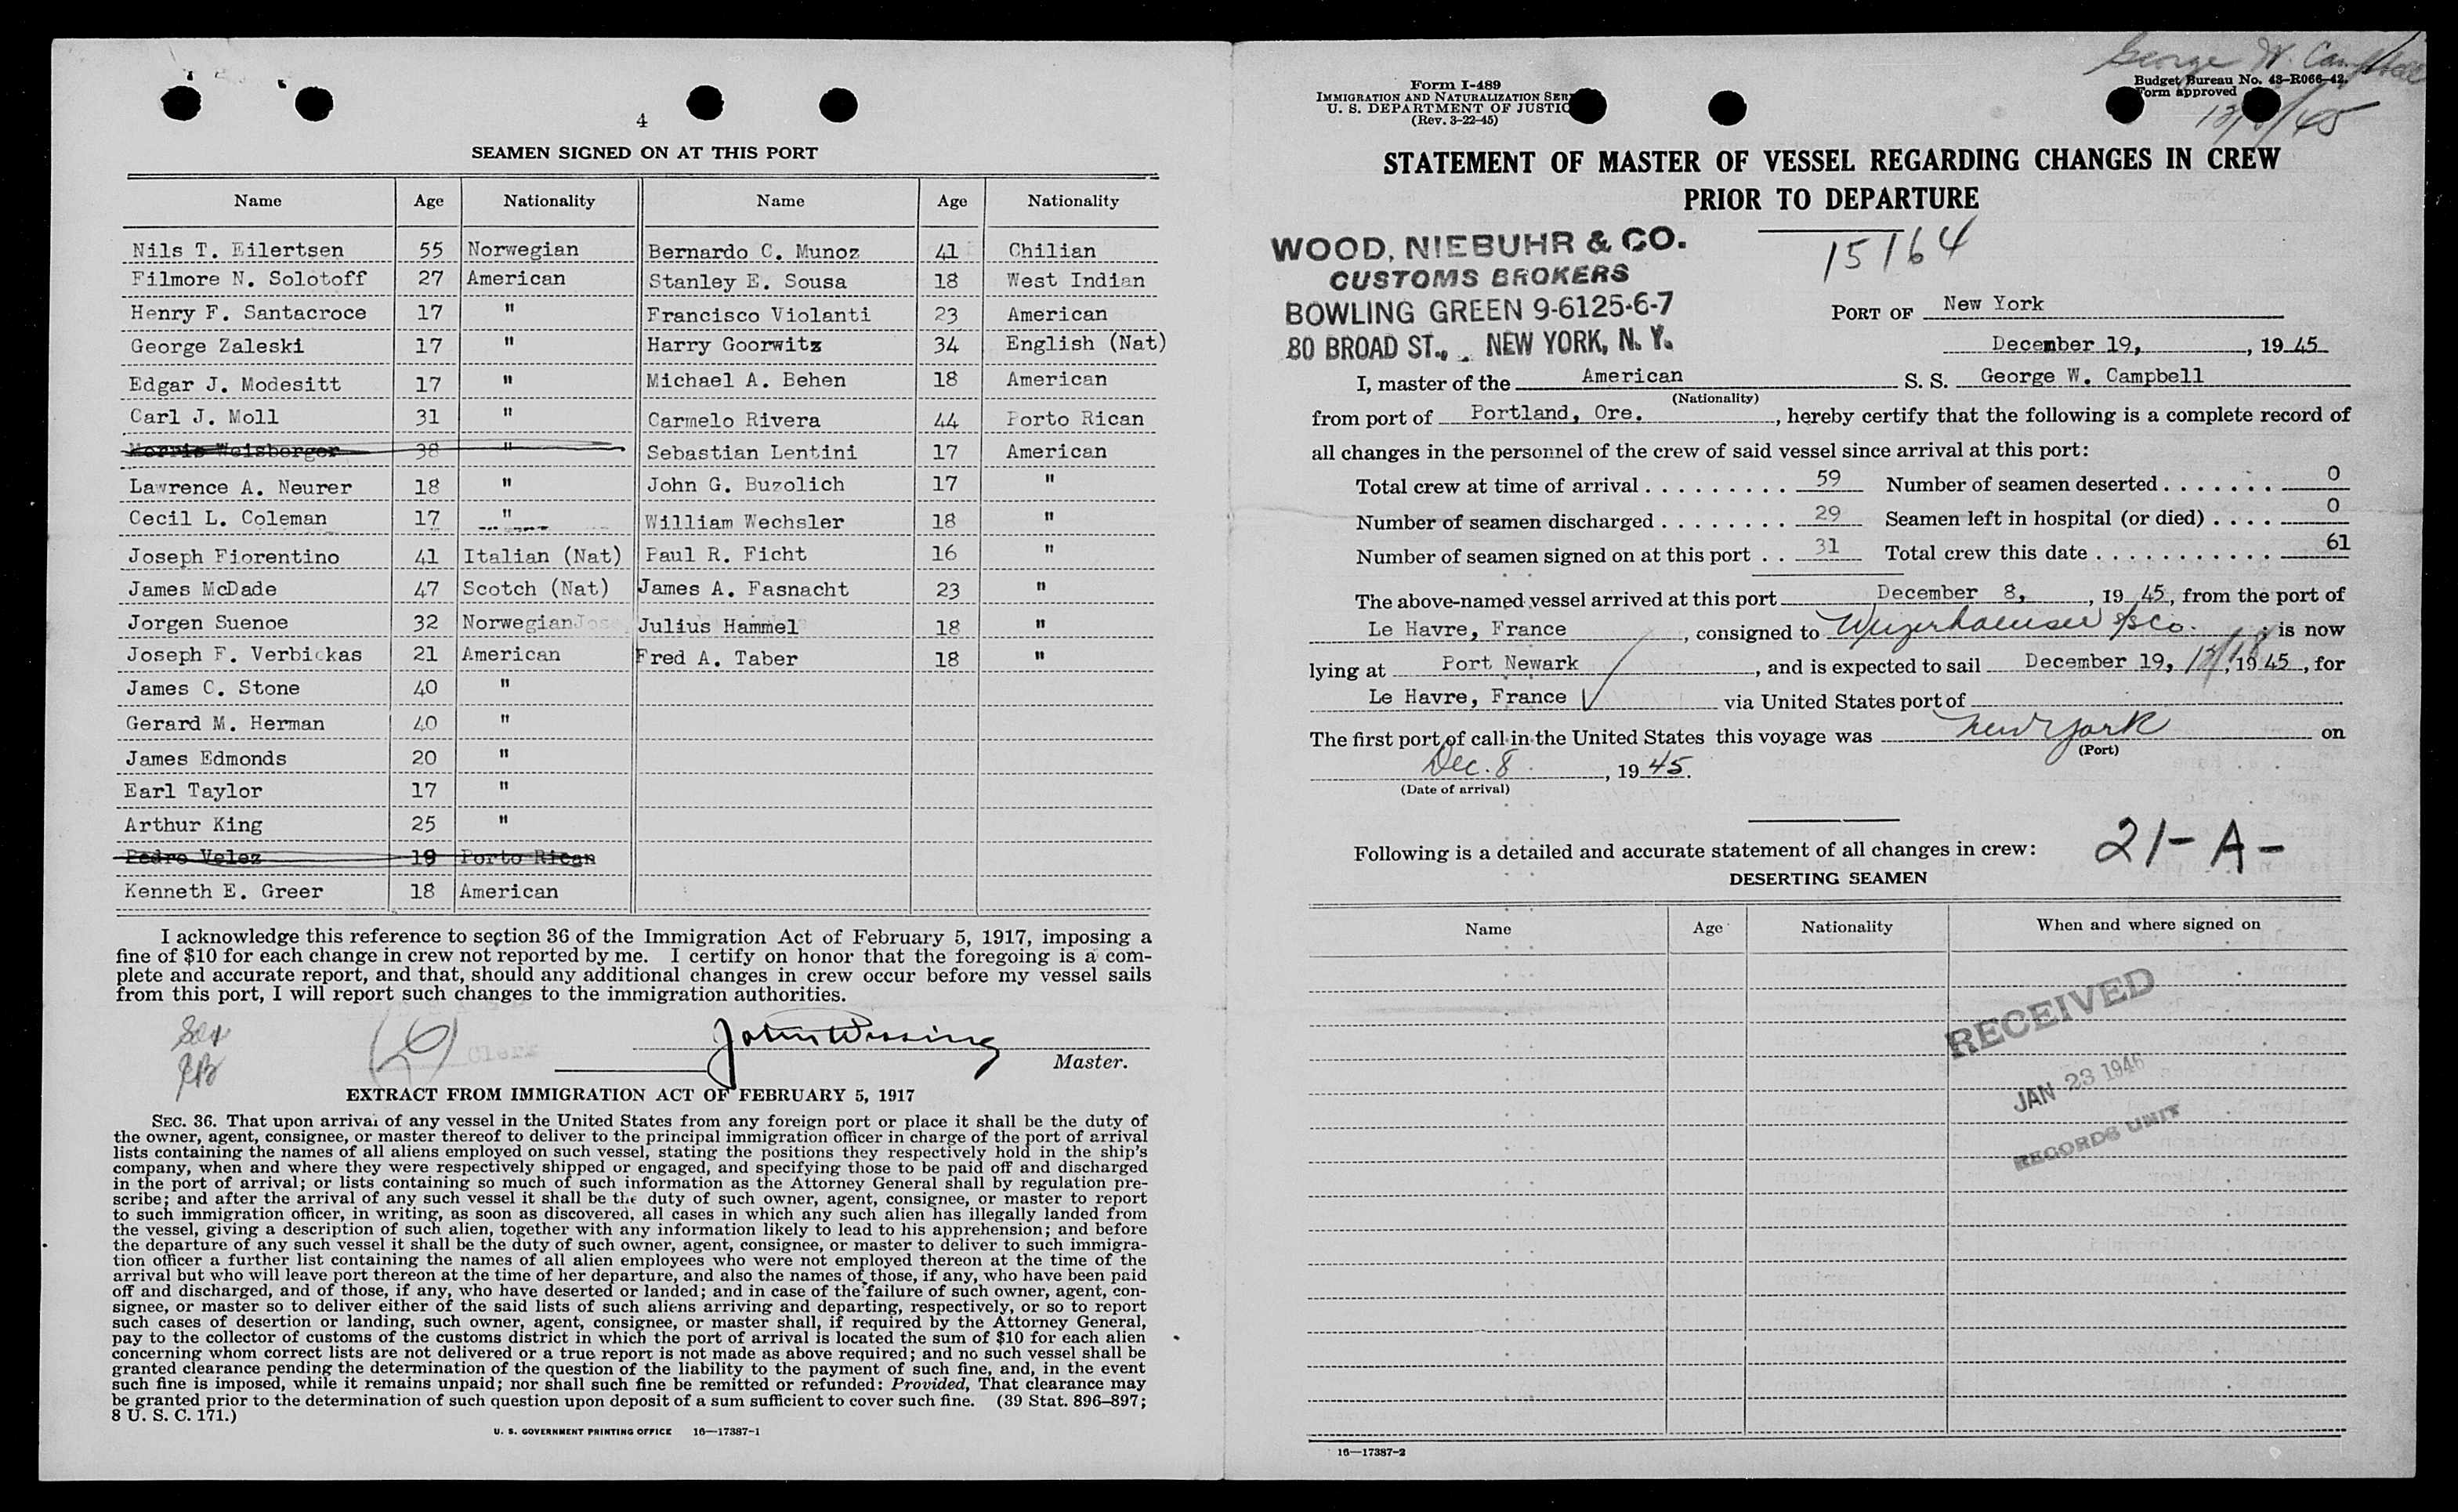 4
SEAMEN SIGNED ON AT THIS PORT
Name Age Nationality Name Age Nationality
Nils T. Eilertsen 55 Norwegian Bernardo C. Munoz 41 Chilian
Filmore N. Solotoff 27 American Stanley E. Sousa 18 West Indian
Henry F. Santacroce 17 " Francisco Violanti 23 American
George Zaleski 17 " Harry Goorwitz 34 English (Nat)
Edgar J. Modesitt 17 " Michael A. Behen 18 American
Carl J. Moll 31 " Carmelo Rivera 44 Porto Rican
Morris Weisberger 38 " Sebastian Lentini 17 American
Lawrence A. Neurer 18 " John G. Buzolich 17 "
Cecil L. Coleman 17 " William Wechsler 18 "
Joseph Fiorentino 41 Italian (Nat) Paul R. Ficht 16 "
James McDade 47 Scotch (Nat) James A. Fasnacht 23 "
Jorgen Suenoe 32 Norwegian Julius Hammel 18 "
Joseph F. Verbickas 21 American Fred A. Taber 18 "
James C. Stone 40 "
Gerard M. Herman 40 "
James Edmonds 20 "
Earl Taylor 17 "
Arthur King 25 "
Pedro Velez 19 Porto Rican
Kenneth E. Greer 18 American
I acknowledge this reference to section 36 of the Immigration Act of February 5, 1917, imposing a
fine of $10 for each change in crew not reported by me. I certify on honor that the foregoing is a com-
plete and accurate report, and that, should any additional changes in crew occur before my vessel sails
from this port, I will report such changes to the immigration authorities.
Clerk
Master.
EXTRACT FROM IMMIGRATION ACT OF FEBRUARY 5, 1917
SEC. 36. That upon arrival of any vessel in the United States from any foreign port or place it shall be the duty of
the owner, agent, consignee, or master thereof to deliver to the principal immigration officer in charge of the port of arrival
lists containing the names of all aliens employed on such vessel, stating the positions they respectively hold in the ship's
company, when and where they were respectively shipped or engaged, and specifying those to be paid off and discharged
in the port of arrival; or lists containing so much of such information as the Attorney General shall by regulation pre-
scribe; and after the arrival of any such vessel it shall be the duty of such owner, agent, consignee, or master to report
to such immigration officer, in writing, as soon as discovered, all cases in which any such alien has illegally landed from
the vessel, giving a description of such alien, together with any information likely to lead to his apprehension; and before
the departure of any such vessel it shall be the duty of such owner, agent, consignee, or master to deliver to such immigra-
tion officer a further list containing the names of all alien employees who were not employed thereon at the time of the
arrival but who will leave port thereon at the time of her departure, and also the names of those, if any, who have been paid
off and discharged, and of those, if any, who have deserted or landed; and in case of the failure of such owner, agent, con-
signee, or master so to deliver either of the said lists of such aliens arriving and departing, respectively, or so to report
such cases of desertion or landing, such owner, agent, consignee, or master shall, if required by the Attorney General,
pay to the collector of customs of the customs district in which the port of arrival is located the sum of $10 for each alien
concerning whom correct lists are not delivered or a true report is not made as above required; and no such vessel shall be
granted clearance pending the determination of the question of the liability to the payment of such fine, and, in the event
such fine is imposed, while it remains unpaid; nor shall such fine be remitted or refunded: Provided, That clearance may
be granted prior to the determination of such question upon deposit of a sum sufficient to cover such fine. (39 Stat. 896–897;
8 U. S. C. 171.)
U. S. GOVERNMENT PRINTING OFFICE 16—17387-1
George W. Campbell
Form I-489
IMMIGRATION AND NATURALIZATION SER
U. S. DEPARTMENT OF JUSTIC
(Rev. 3-22-45)
Budget Bureau No. 43-R066-42.
Form approved
STATEMENT OF MASTER OF VESSEL REGARDING CHANGES IN CREW
PRIOR TO DEPARTURE
WOOD, NIEBUHR & CO.
CUSTOMS BROKERS
BOWLING GREEN 9-6125-6-7
80 BROAD ST., NEW YORK, N. Y.
15164
PORT OF New York
December 19, , 19 45
I, master of the American S. S. George W. Campbell
(Nationality)
from port of Portland, Ore. , hereby certify that the following is a complete record of
all changes in the personnel of the crew of said vessel since arrival at this port:
Total crew at time of arrival . . . . . . . . . 59 Number of seamen deserted . . . . . . . 0
Number of seamen discharged . . . . . . . . 29 Seamen left in hospital (or died) . . . . 0
Number of seamen signed on at this port . . 31 Total crew this date . . . . . . . . . . . 61
The above-named vessel arrived at this port December 8, , 19 45, from the port of
Le Havre, France , consigned to Weyerhaeuser SS Co. ; is now
lying at Port Newark , and is expected to sail December 19, 12/18, 19 45, for
Le Havre, France via United States port of
The first port of call in the United States this voyage was New York on
(Port)
Dec. 8 , 19 45.
(Date of arrival)
Following is a detailed and accurate statement of all changes in crew: 21-A-
DESERTING SEAMEN
Name Age Nationality When and where signed on
RECEIVED
JAN 23 1946
RECORDS UNIT
16—17387-2